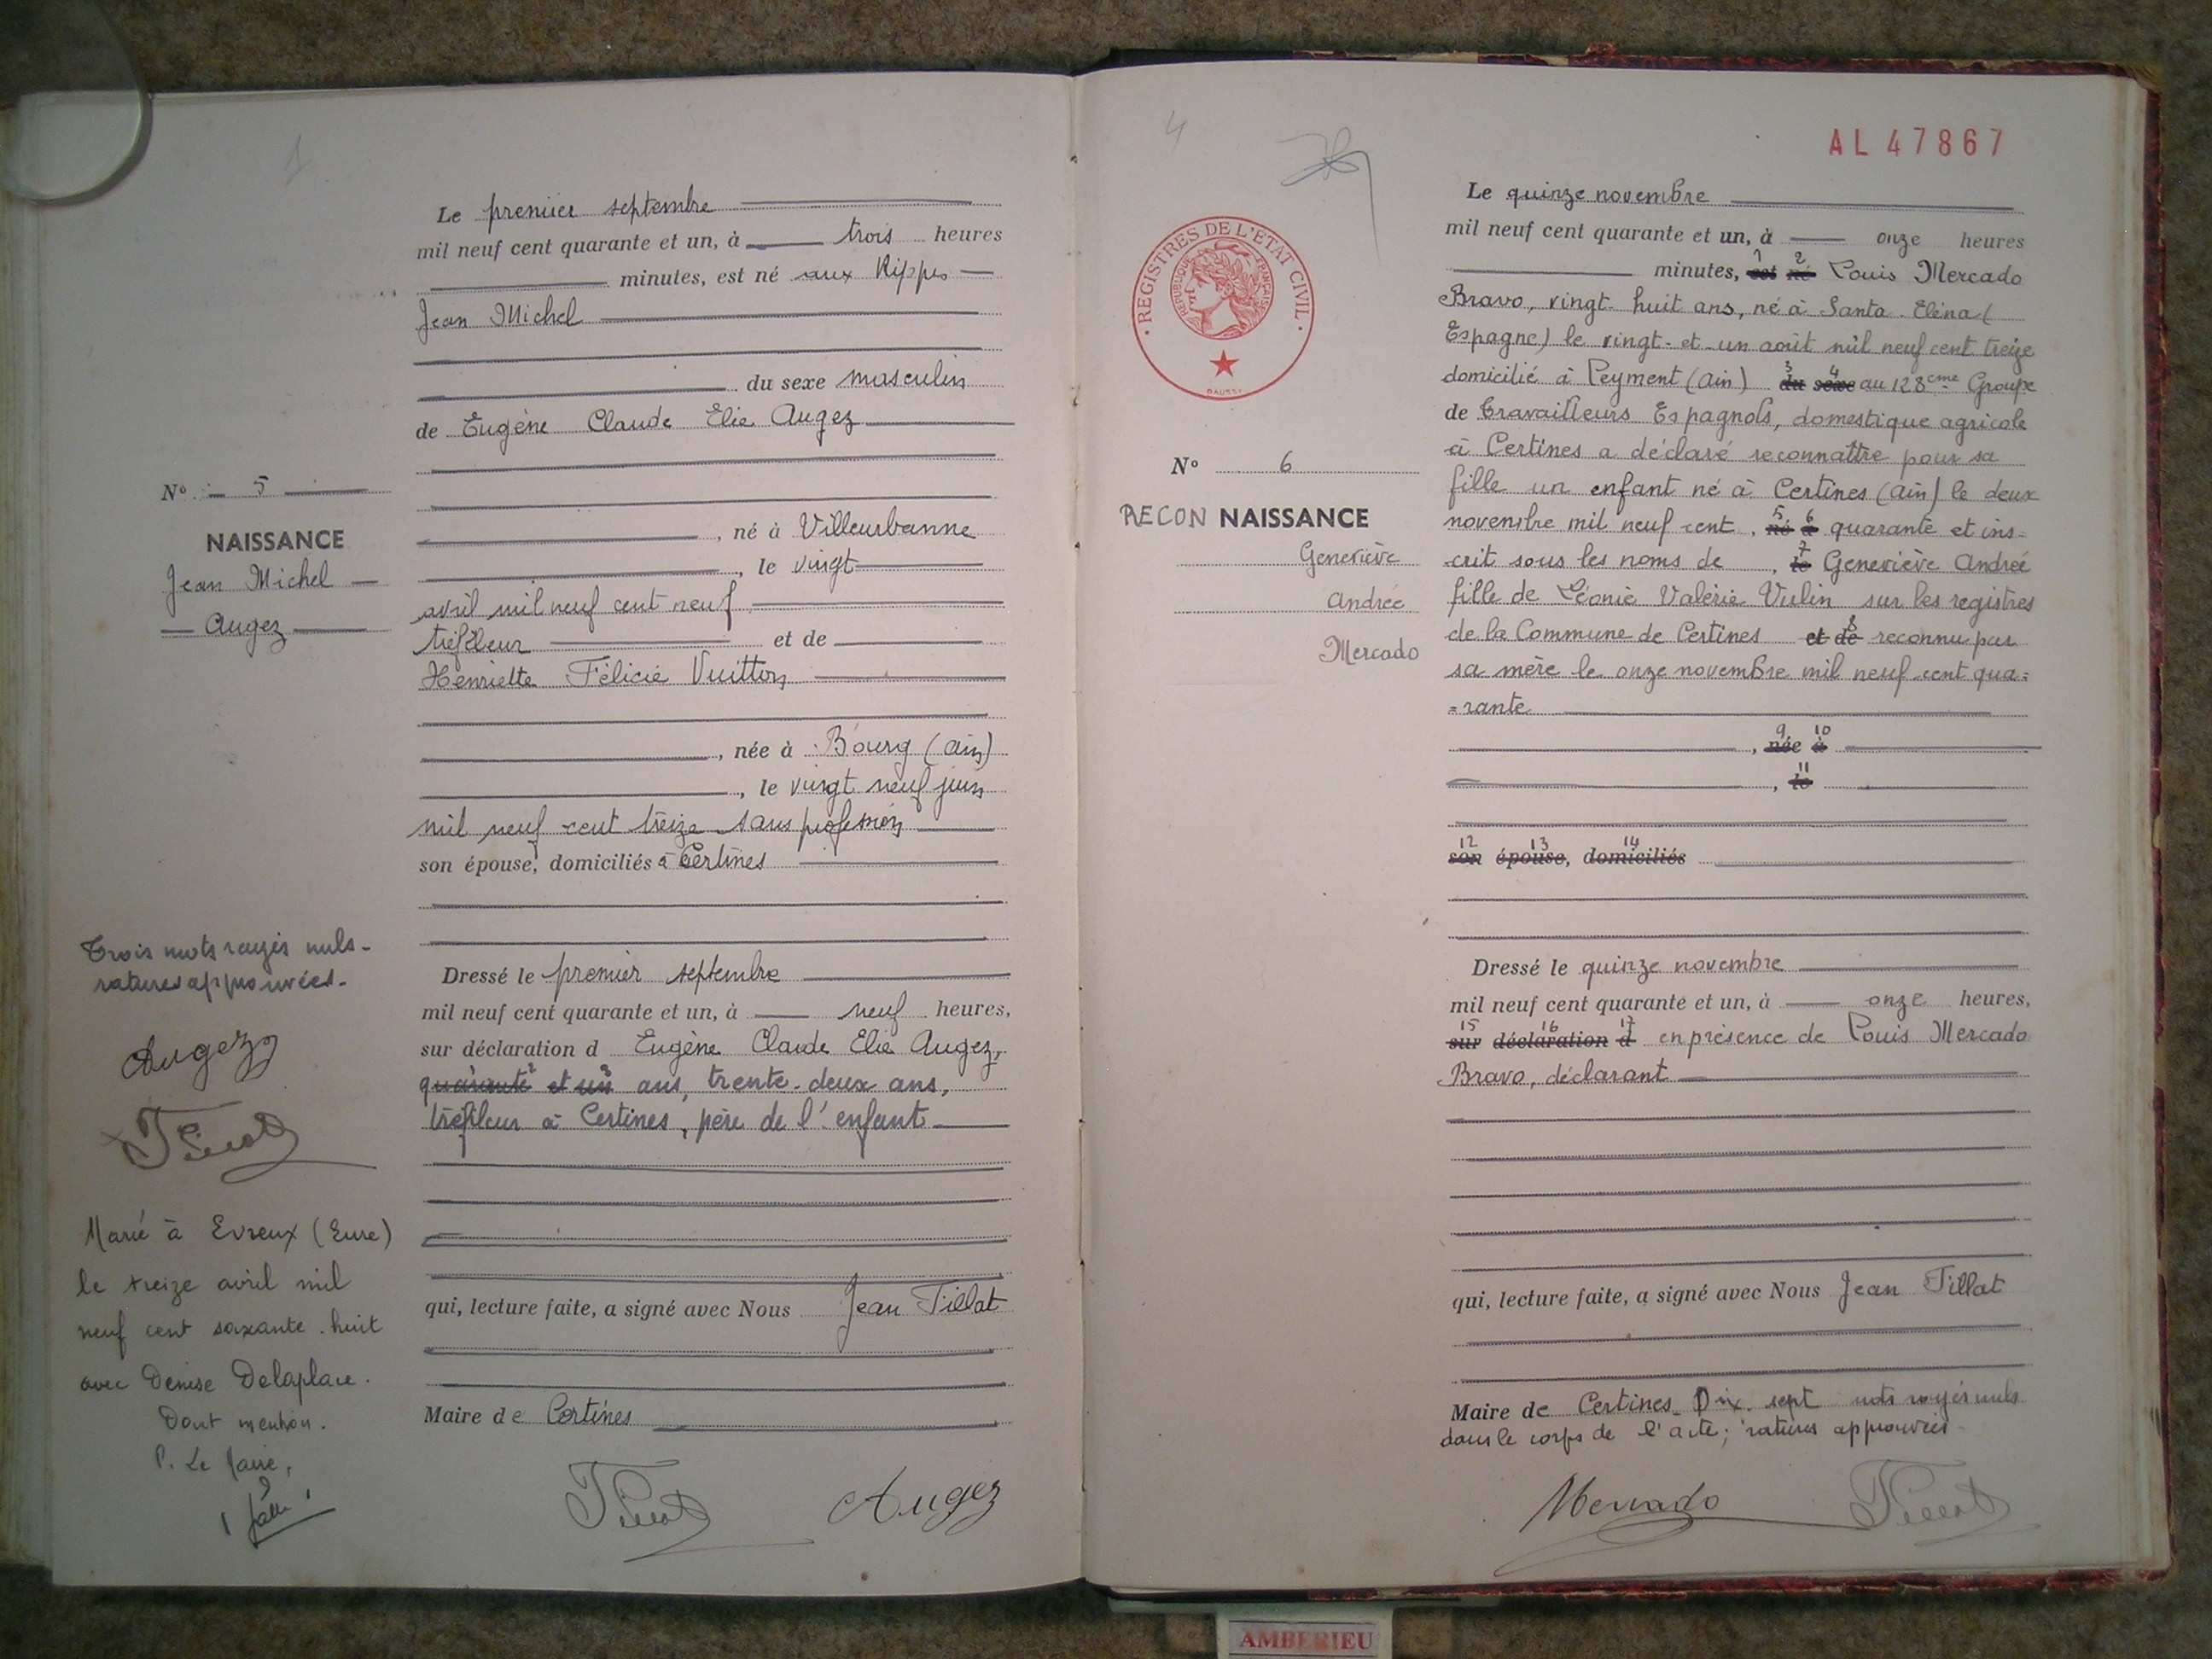 1
Le premier septembre
mil neuf cent quarante et un, à trois heures
minutes, est né aux Rippes
Jean Michel
du sexe masculin
de Eugène Claude Elie Augez
, né à Villeurbanne
, le vingt
avril mil neuf cent neuf
tréfileur et de
Henriette Félicie Vuitton
, née à Bourg (Ain)
, le vingt neuf juin
mil neuf cent treize sans profession
son épouse, domiciliés à Certines
Dressé le premier septembre
mil neuf cent quarante et un, à neuf heures,
sur déclaration d Eugène Claude Elie Augez,
quarante et un ans, trente-deux ans,
tréfileur à Certines, père de l'enfant
qui, lecture faite, a signé avec Nous Jean Tillat
Maire de Certines
Augez
N° 5
NAISSANCE
Jean Michel
Augez
Trois mots rayés nuls-
ratures approuvées.
Augez
Marié à Evreux (Eure)
le treize avril mil
neuf cent soixante-huit
avec Denise Delaplace.
Dont mention.
P. Le Maire,
4
AL 47867
REGISTRES DE L'ÉTAT CIVIL
RÉPUBLIQUE FRANÇAISE
N° 6
RECONNAISSANCE
Geneviève
Andrée
Mercado
Le quinze novembre
mil neuf cent quarante et un, à onze heures
minutes, est 1 né 2 Louis Mercado
Bravo, vingt-huit ans, né à Santa-Eléna (
Espagne) le vingt-et-un août mil neuf cent treize
domicilié à Leyment (Ain) du 3 sexe 4 au 128ème Groupe
de Travailleurs Espagnols, domestique agricole
à Certines a déclaré reconnaître pour sa
fille un enfant né à Certines (Ain) le deux
novembre mil neuf cent, né 5 à 6 quarante et ins=
crit sous les noms de , le 7 Geneviève Andrée
fille de Léonie Valérie Vulin sur les registres
de la Commune de Certines et de 8 reconnu par
sa mère le onze novembre mil neuf cent qua=
=rante
, née 9 à 10
, le 11
son 12 épouse 13, domiciliés 14
Dressé le quinze novembre
mil neuf cent quarante et un, à onze heures,
sur 15 déclaration 16 d 17 en présence de Louis Mercado
Bravo, déclarant
qui, lecture faite, a signé avec Nous Jean Tillat
Maire de Certines Dix-sept mots rayés nuls
dans le corps de l'acte; ratures approuvées-
Mercado
AMBERIEU